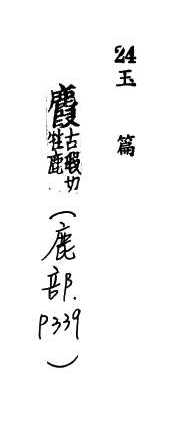 24
玉篇
麚 古瑕切 牡鹿 (鹿部. P339)